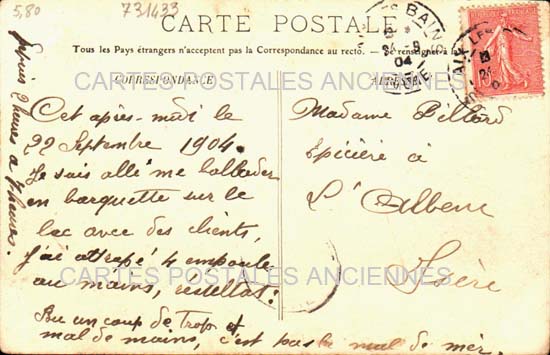 5,80
731433
CARTE POSTALE
Tous les Pays étrangers n'acceptent pas la Correspondance au recto. — Se renseigner à la
CORRESPONDANCE
Cet après-midi le
22 Septembre 1904.
Je suis allé me ballader
en barquette sur le
lac avec des clients,
j'ai attrapé 4 ampoules
au mains, resultat:
Bu un coup de trop et
mal de mains, c'est pas le mal de mer.
depuis 2 heures a 7 heures.
Madame Billard
Epicière à
L'Albenc
Isère
CARTES POSTALES ANCIENNES
CARTES POSTALES ANCIENNES
BAIN
04
AIX LES
10